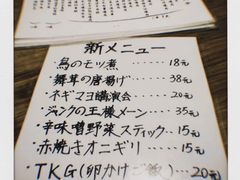 新メニュー
・鳥のモツ煮 18元
・舞茸の唐揚げ 38元
・ネギマヨ講演会 20元
・ジャンクの王様メーン 35元
・辛味噌野菜スティック 15元
・赤焼きオニギリ 15元
・TKG(卵かけご飯) 20元